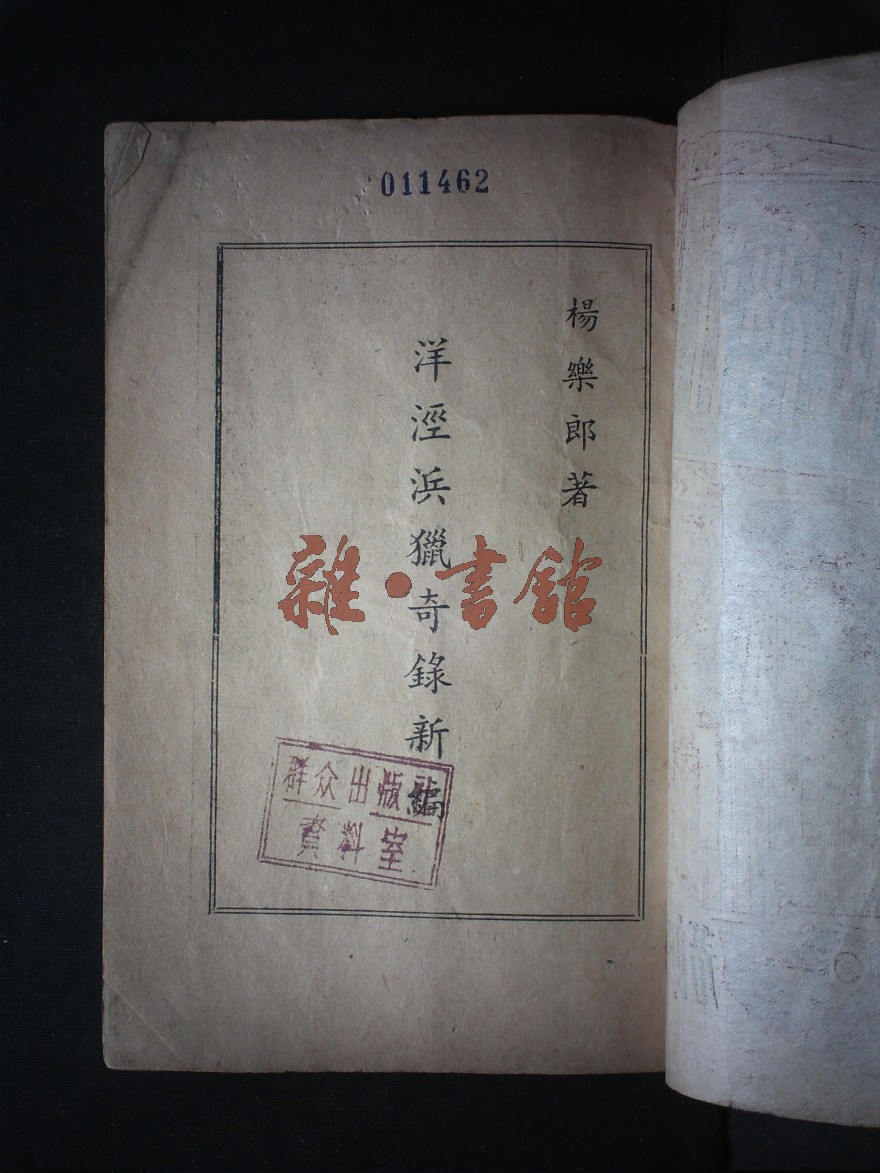 011462
楊樂郎著
洋涇浜獵奇錄新編
雜·書館
群众出版社
資料室